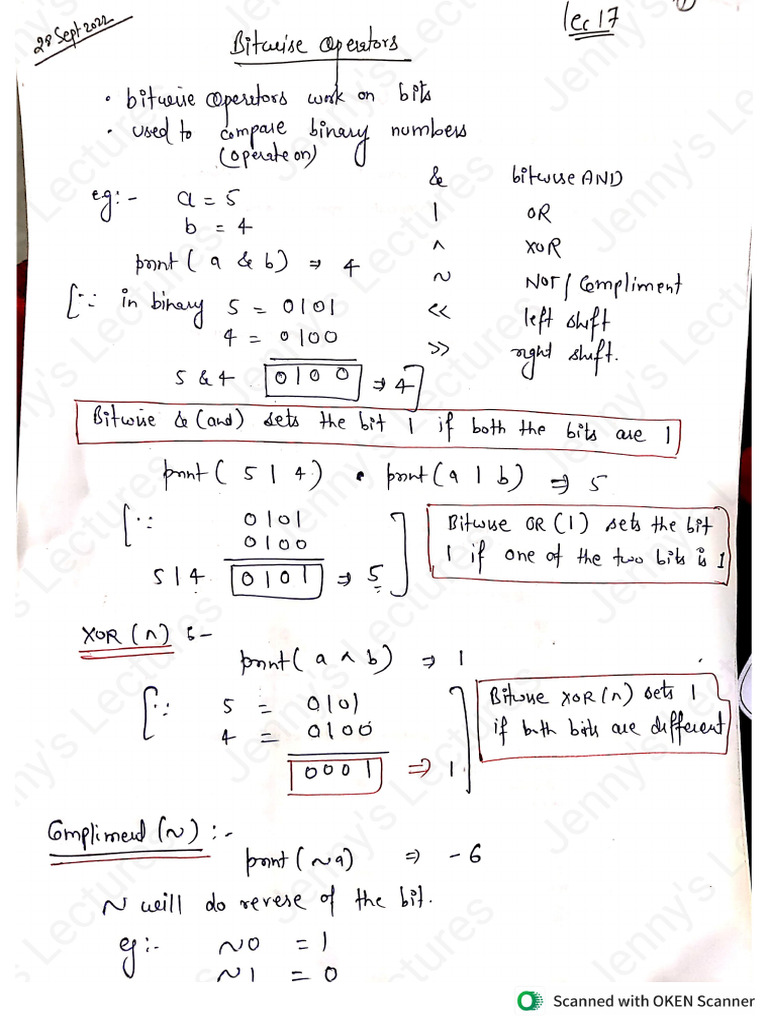 28 Sept 2022
Lec 17
1
Bitwise Operators
• bitwise operators work on bits
• used to compare binary numbers
(operate on)
eg:- a = 5
b = 4
print( a & b) ⇒ 4
[∵ in binary 5 = 0101
4 = 0100
5 & 4 0100 ⇒ 4]
& bitwise AND
| OR
^ XOR
~ NOT / Compliment
<< left shift
>> right shift.
Bitwise & (and) sets the bit 1 if both the bits are 1
print( 5 | 4 ) • print( a | b ) ⇒ 5
[∵ 0101
0100
5 | 4 0101 ⇒ 5]
Bitwise OR (|) sets the bit
1 if one of the two bits is 1
XOR (^) :-
print( a ^ b ) ⇒ 1
[∵ 5 = 0101
4 = 0100
0001 ⇒ 1]
Bitwse XOR (^) sets 1
if both bits are different
Compliment (~) :-
print( ~a) ⇒ -6
~ will do reverse of the bit.
eg:- ~0 = 1
~1 = 0
Jenny's Lectures
Scanned with OKEN Scanner